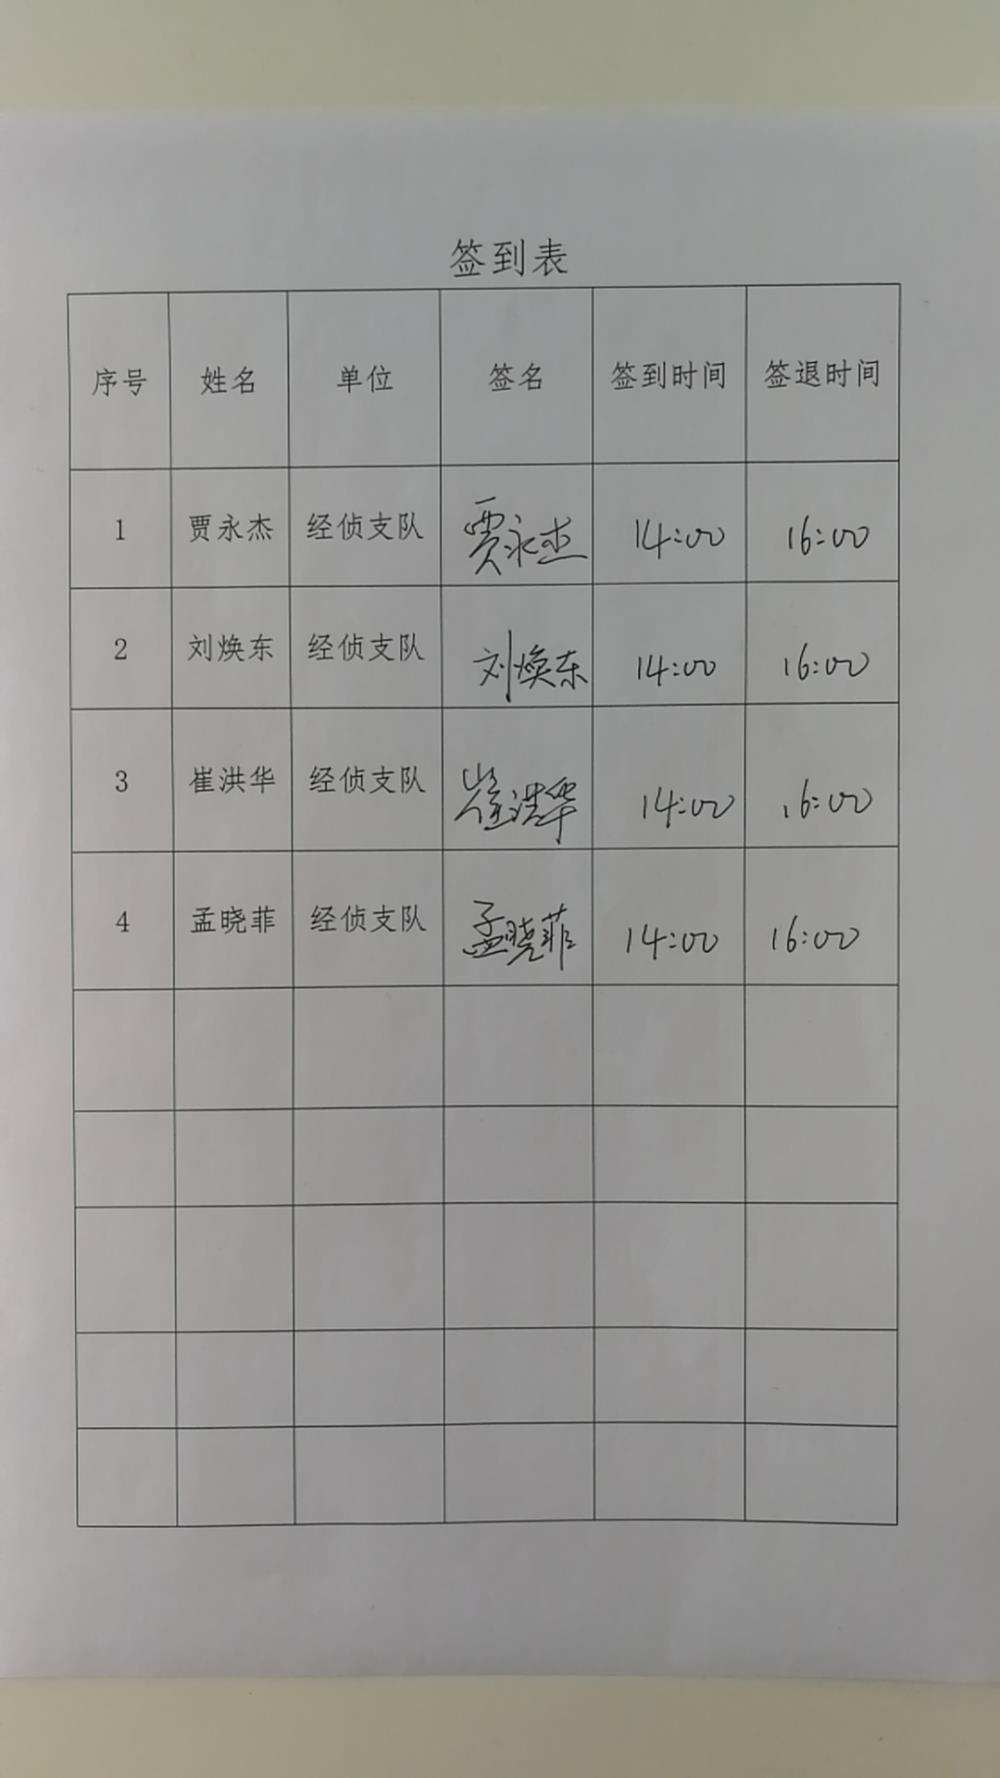 签到表
序号 姓名 单位 签名 签到时间 签退时间
1 贾永杰 经侦支队 贾永杰 14:00 16:00
2 刘焕东 经侦支队 刘焕东 14:00 16:00
3 崔洪华 经侦支队 崔洪华 14:00 16:00
4 孟晓菲 经侦支队 孟晓菲 14:00 16:00